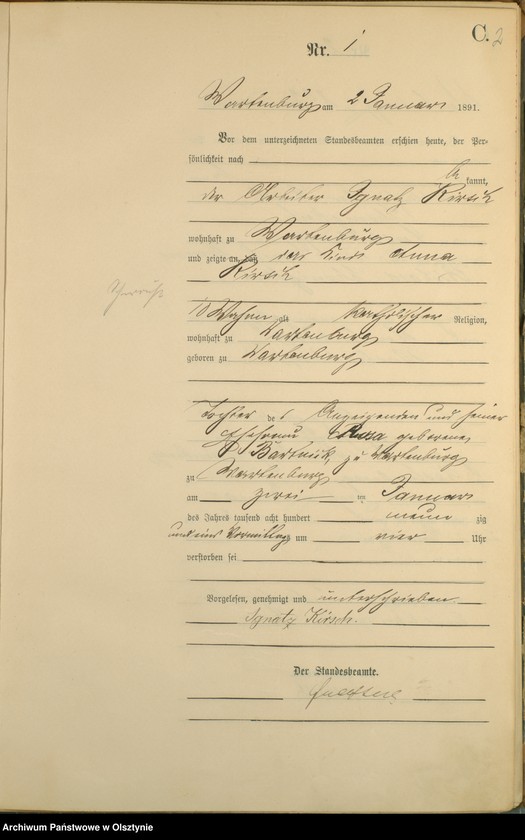 C. 2
Nr. 1
Wartenburg am 2 Januar 1891.
Vor dem unterzeichneten Standesbeamten erschien heute, der Per-
sönlichkeit nach
be kannt,
der Arbeiter Ignatz Kirsch
wohnhaft zu Wartenburg
und zeigte an, daß das Kind Anna
Kirsch
alt katholischer Religion,
wohnhaft zu Wartenburg
geboren zu Wartenburg
Tochter des Anzeigenden und seiner
Ehefrau Rosa geborene
zu Wartenburg
zu Wartenburg
am zwei ten Januar
des Jahres tausend acht hundert neun zig
und eins Vormittags um vier Uhr
verstorben sei
Vorgelesen, genehmigt und unterschrieben
Ignatz Kirsch.
Der Standesbeamte.
Archiwum Państwowe w Olsztynie